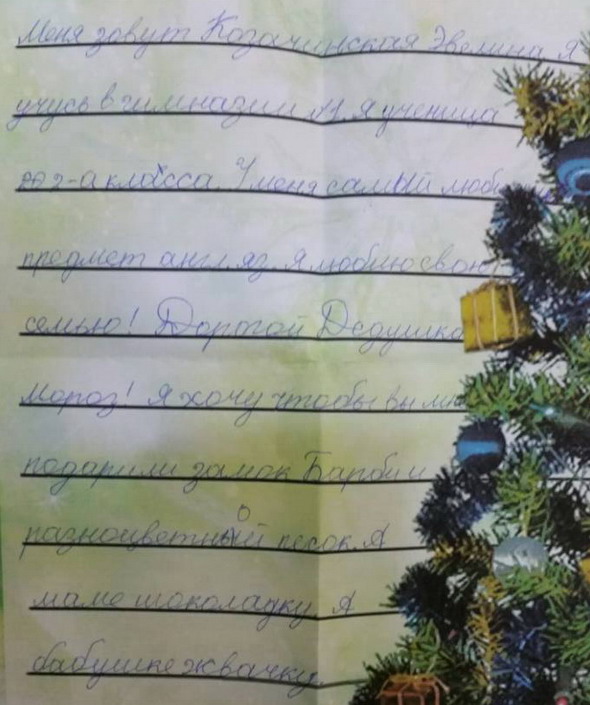 Меня зовут Козачинская Эвелина Я
учусь в гимназии №1. Я ученица
2-а класса. У меня самый люби
предмет англ.яз. Я люблю свою
семью! Дортой Дедушка
Мороз! Я хочу чтобы вы мне
подарили замок Барби и
разноцветный песок. А
маме шоколадку. А
бабушке жвачку.